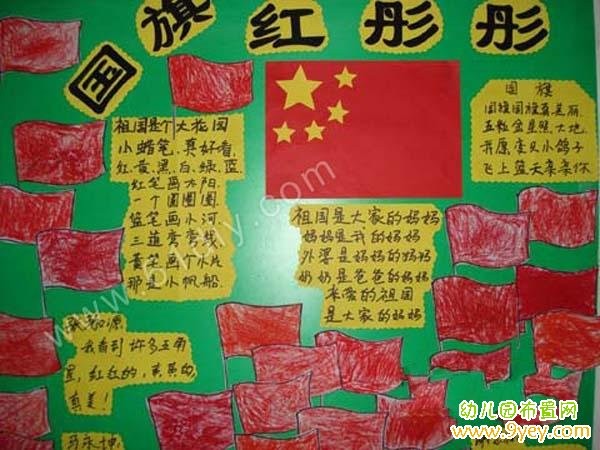 国旗红彤彤
祖国是个大花园
小蜡笔,真好看,
红、黄、黑、白、绿、蓝.
红笔画太阳.
一个圆圈圈.
篮笔画小河.
三道弯弯线.
黄笔画个小片
那是小帆船.
祖国是大家的妈妈
妈妈是我的妈妈
外婆是妈妈的妈妈
奶奶是爸爸的妈妈
亲爱的祖国
是大家的妈妈
国 旗
国旗国旗真美丽.
五粒金星照大地.
我愿变只小鸽子
飞上蓝天亲亲你
我看到许多五角
星,红红的,黄黄的,
真美!
幼儿园布置网
www.9yey.com